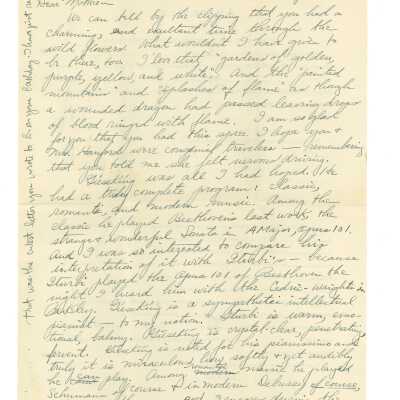 Dear
We can tell by the clipping that you had a
charming, and exultant time through the
wild flowers. What wouldn't I have given to
be there, too. I love that "gardens of golden,
purple, yellow, and white". And the "painted
mountain" and "splashes of flame" as though
a wounded dragon had passed leaving drops
of blood ringed with flame. I am so glad
for you that you had this spree. I hope you &
Mrs. Hanford were congenial travelers — remembering
that you told me she felt nervous driving.
Gieseking was all I had hoped. He
had a truly complete program: classic,
romantic, and modern music. Among the
classic he played Beethoven's last work, the
strange wonderful Sonata in A Major, opus 101.
And I was so interested to compare his
interpretation of it with Iturbi's — because
Iturbi played the opus 101 of Beethoven the
night I heard him with the
Gieseking is a sympathetic intellectual
pianist — to my notion. Iturbi is warm, emo-
tional, balmy. Gieseking is crystal-clear, penetrating,
fervent. Gieseking is noted for his pianissimo and
truly it is miraculous how softly & yet audibly
he can play. Among romantic music he played
Schumann of course & in modern Debussy of course,
during the
that was the cutest letter you wrote to him